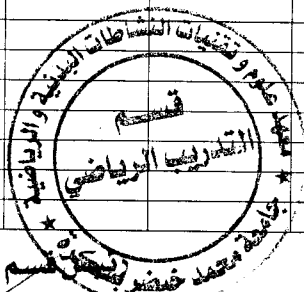 معهد علوم وتقنيات النشاطات البدنية والرياضية
قسم
التدريب الرياضي
جامعة محمد خيضر بسكرة
قسم